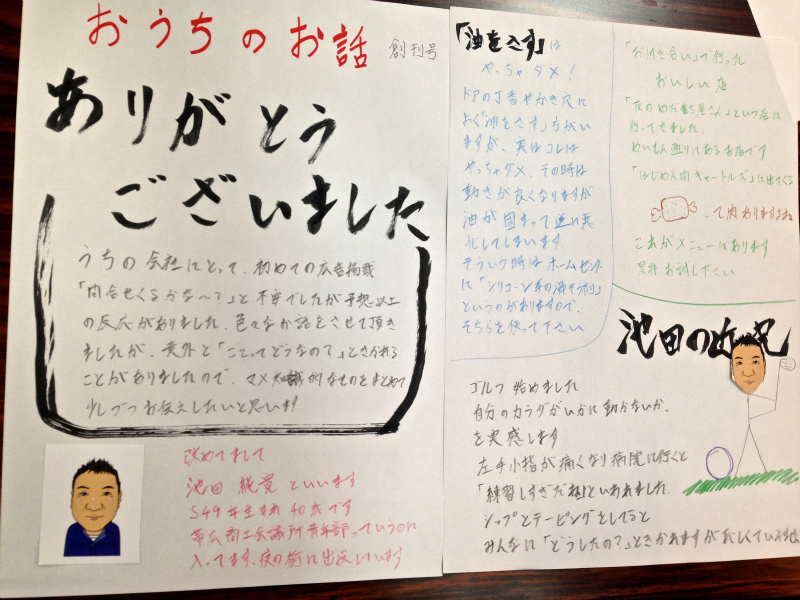 おうちのお話
創刊号
ありがとう
ございました
うちの会社にとって、初めての広告掲載
「問合せくるかな〜？」と不安でしたが予想以上
の反応がありました。色々なお話をさせて頂き
ましたが、意外と「ここってどうなの？」ときかれる
ことがありましたので、マメ知識的なものをまとめて
少しづつお伝えしたいと思います
改めてまして
池田 といいます
S49年生まれ 40歳です
帯広商工会議所青年部っていうのに
入ってます、夜の街に出没しています
「油をさす」は
やっちゃダメ！
ドアの丁番やかぎ穴に
よく「油をさす」方がい
ますが、実はコレは
やっちゃダメ、その時は
動きが良くなりますが
油が固まって逆に悪
化してしまいます
そういう時はホームセンター
に「シリコーン系の潤滑剤」
というのがありますので、
そちらを使って下さい
「お付き合い」で行った
おいしい店
「夜のめだ 屋さん」という店に
行ってきました。
めいもん通りにあるお店です
「はじめ人間ギャートルズ」に出てくる
、て肉ありますよね
これがメニューにあります
是非お試し下さい
池田の近況
ゴルフ始めました
自分のカラダがいかに動かないか、
を実感します
左手小指が痛くなり病院に行くと
「練習しすぎだね」といわれました。
シップとテーピングをしてると
みんなに「どうしたの？」ときかれますが